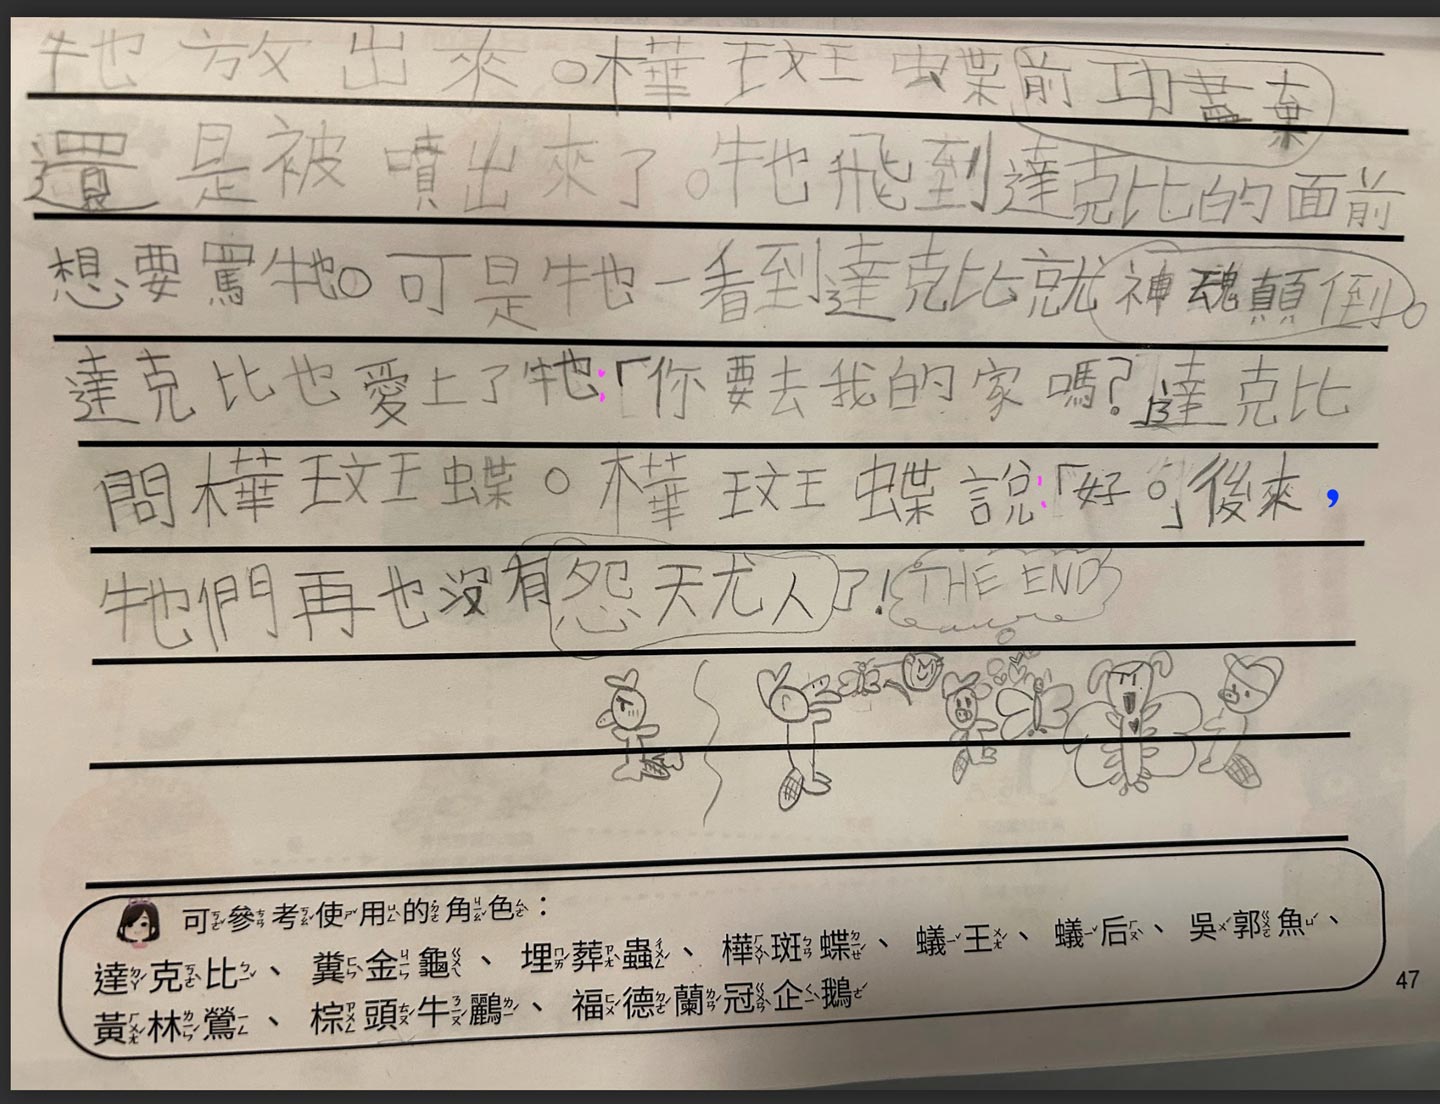 牠放出來。樺斑蝶前功盡棄
還是被噴出來了。牠飛到達克比的面前
想要罵牠。可是牠一看到達克比就神魂顛倒。
達克比也愛上了牠:「你要去我的家嗎?達克比
問樺斑蝶。樺斑蝶說:「好。」後來,
牠們再也沒有怨天尤人了!THE END
可參考使用的角色:
達克比、糞金龜、埋葬蟲、樺斑蝶、蟻王、蟻后、吳郭魚、
黃林鶯、棕頭牛鸝、福德蘭冠企鵝
47